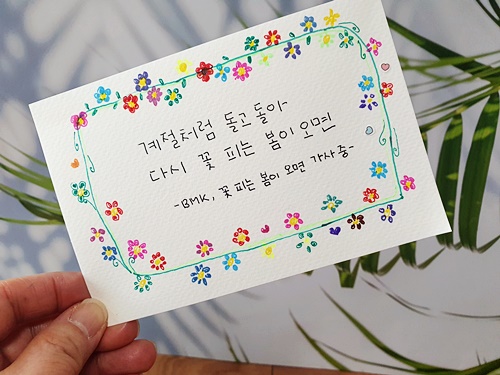 계절처럼 돌고 돌아
다시 꽃 피는 봄이 오면
-BMK, 꽃 피는 봄이 오면 가사 중-